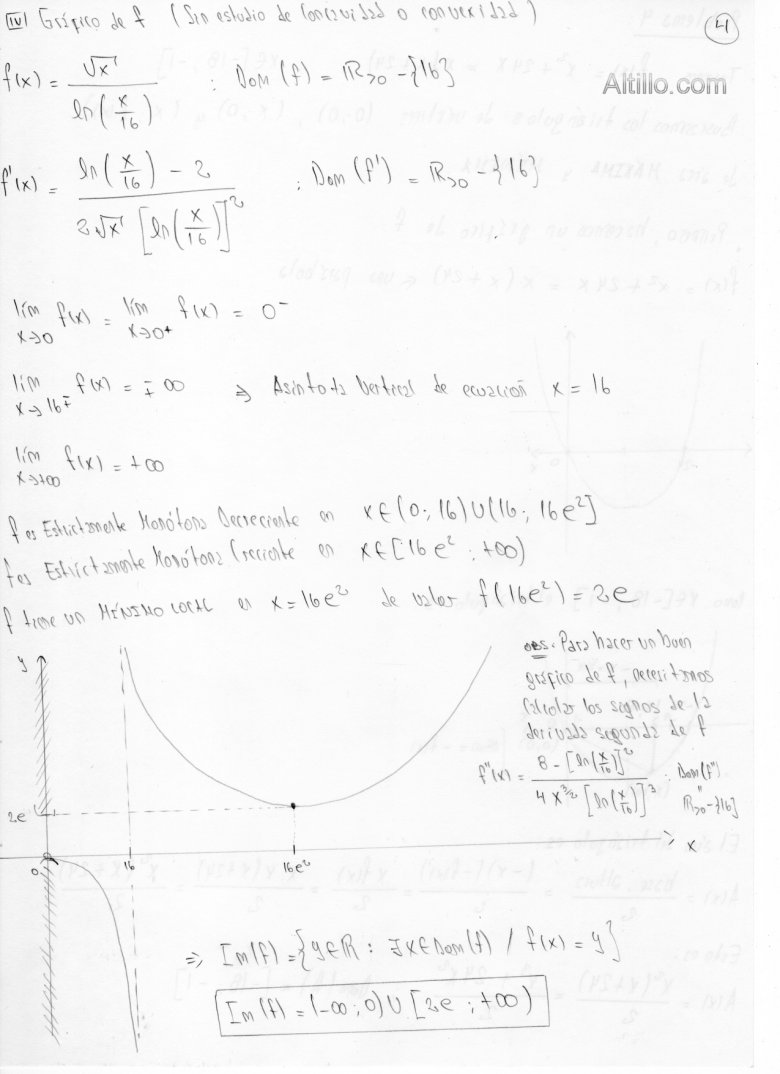 IV) Gráfico de f (Sin estudio de concavidad o convexidad)
4
Altillo.com
f(x) = √x / ln(x/16) ; Dom(f) = ℝ>0 - {16}
f'(x) = (ln(x/16) - 2) / (2√x [ln(x/16)]²) ; Dom(f') = ℝ>0 - {16}
lím x→0 f(x) = lím x→0⁺ f(x) = 0⁻
lím x→16∓ f(x) = ∓∞ ⇒ Asíntota Vertical de ecuación x = 16
lím x→+∞ f(x) = +∞
f es Estrictamente Monótona Decreciente en x∈(0; 16)∪(16; 16e²]
f es Estrictamente Monótona Creciente en x∈[16e²; +∞)
f tiene un MÍNIMO LOCAL en x = 16e² de valor f(16e²) = 2e
obs. Para hacer un buen
gráfico de f, necesitamos
calcular los signos de la
derivada segunda de f
f''(x) = (8 - [ln(x/16)]²) / (4x^(3/2) [ln(x/16)]³) ; Dom(f'') = ℝ>0 - {16}
y
2e
0
16
16e²
x
⇒ Im(f) = {y∈ℝ : ∃x∈Dom(f) / f(x) = y}
Im(f) = (-∞; 0) ∪ [2e; +∞)